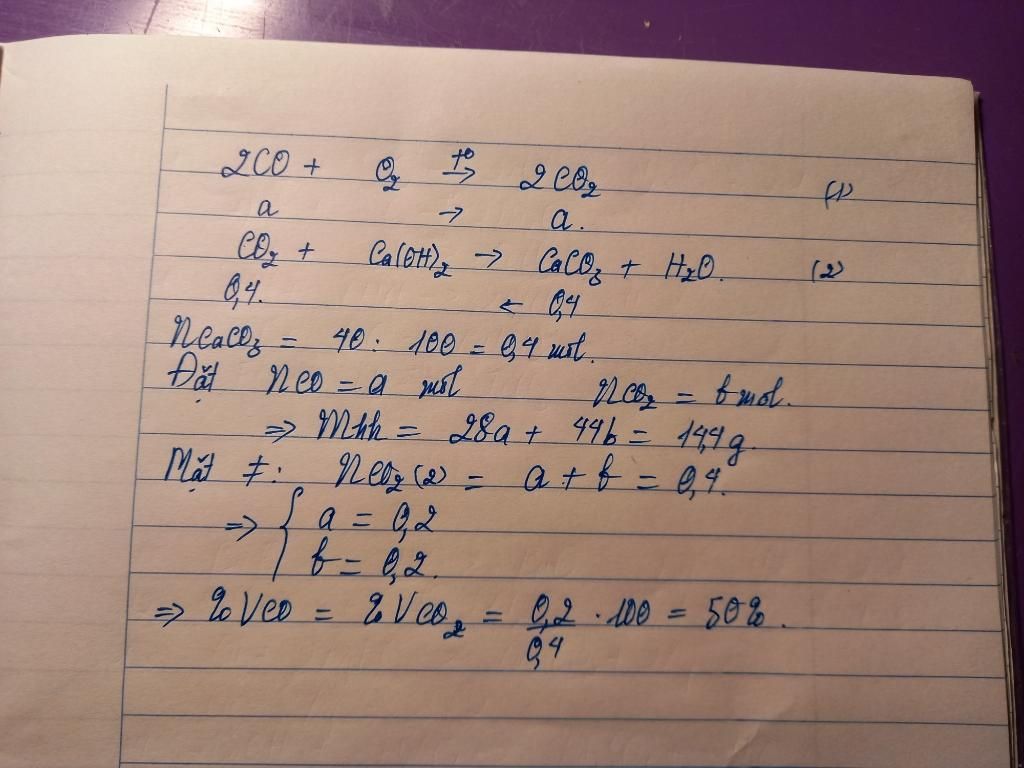 2CO + O₂ t⁰→ 2CO₂ (1)
a → a.
CO₂ + Ca(OH)₂ → CaCO₃ + H₂O. (2)
0,4. ← 0,4
nCaCO₃ = 40 : 100 = 0,4 mol.
Đặt nCO = a mol nCO₂ = b mol.
⇒ mhh = 28a + 44b = 14,4g.
Mặt ≠: nCO₂(2) = a + b = 0,4.
⇒ { a = 0,2
b = 0,2.
⇒ %VCO = %VCO₂ = 0,2/0,4 . 100 = 50%.